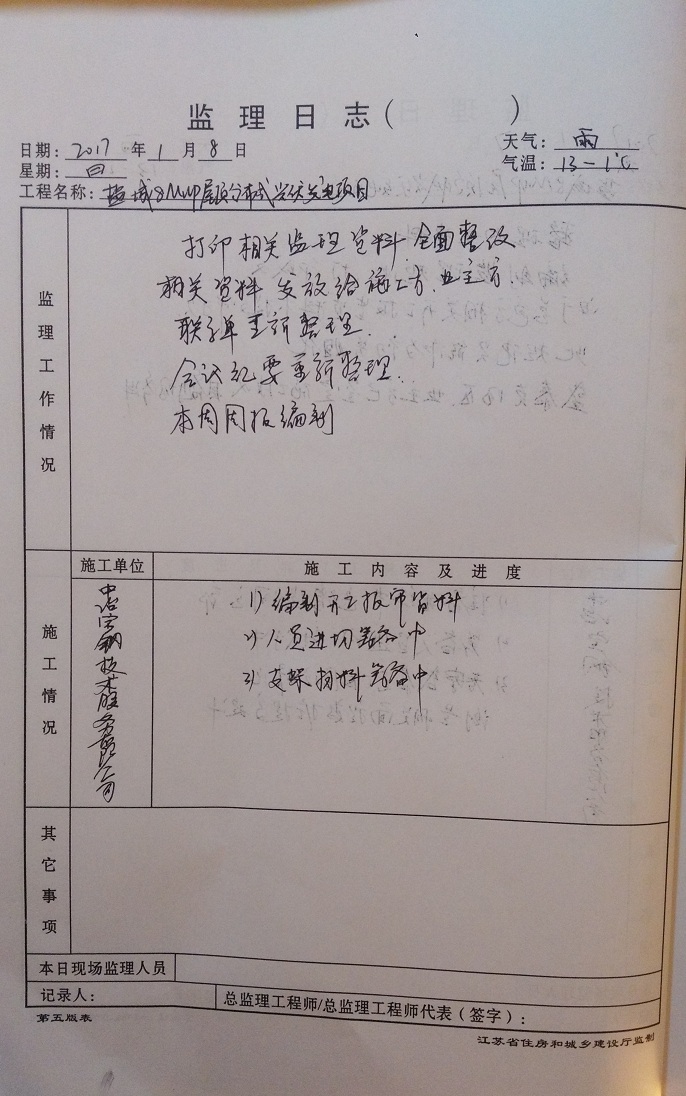 监理日志(　　　)
日期: 2017 年 1 月 8 日
天气: 雨
星期: 日
气温: 13-1℃
工程名称: 盐城8MWP屋顶分布式光伏发电项目
监理工作情况
打印相关监理资料,全面整改
相关资料,发放给施工方,业主方.
联系单重新整理.
会议纪要重新整理.
本周周报编制
施工情况
施工单位
施工内容及进度
中冶宝钢技术服务有限公司
1) 编制开工报审资料
2) 人员进场筹备中
3) 支架材料筹备中
其它事项
本日现场监理人员
记录人:
总监理工程师/总监理工程师代表(签字):
第五版表
江苏省住房和城乡建设厅监制